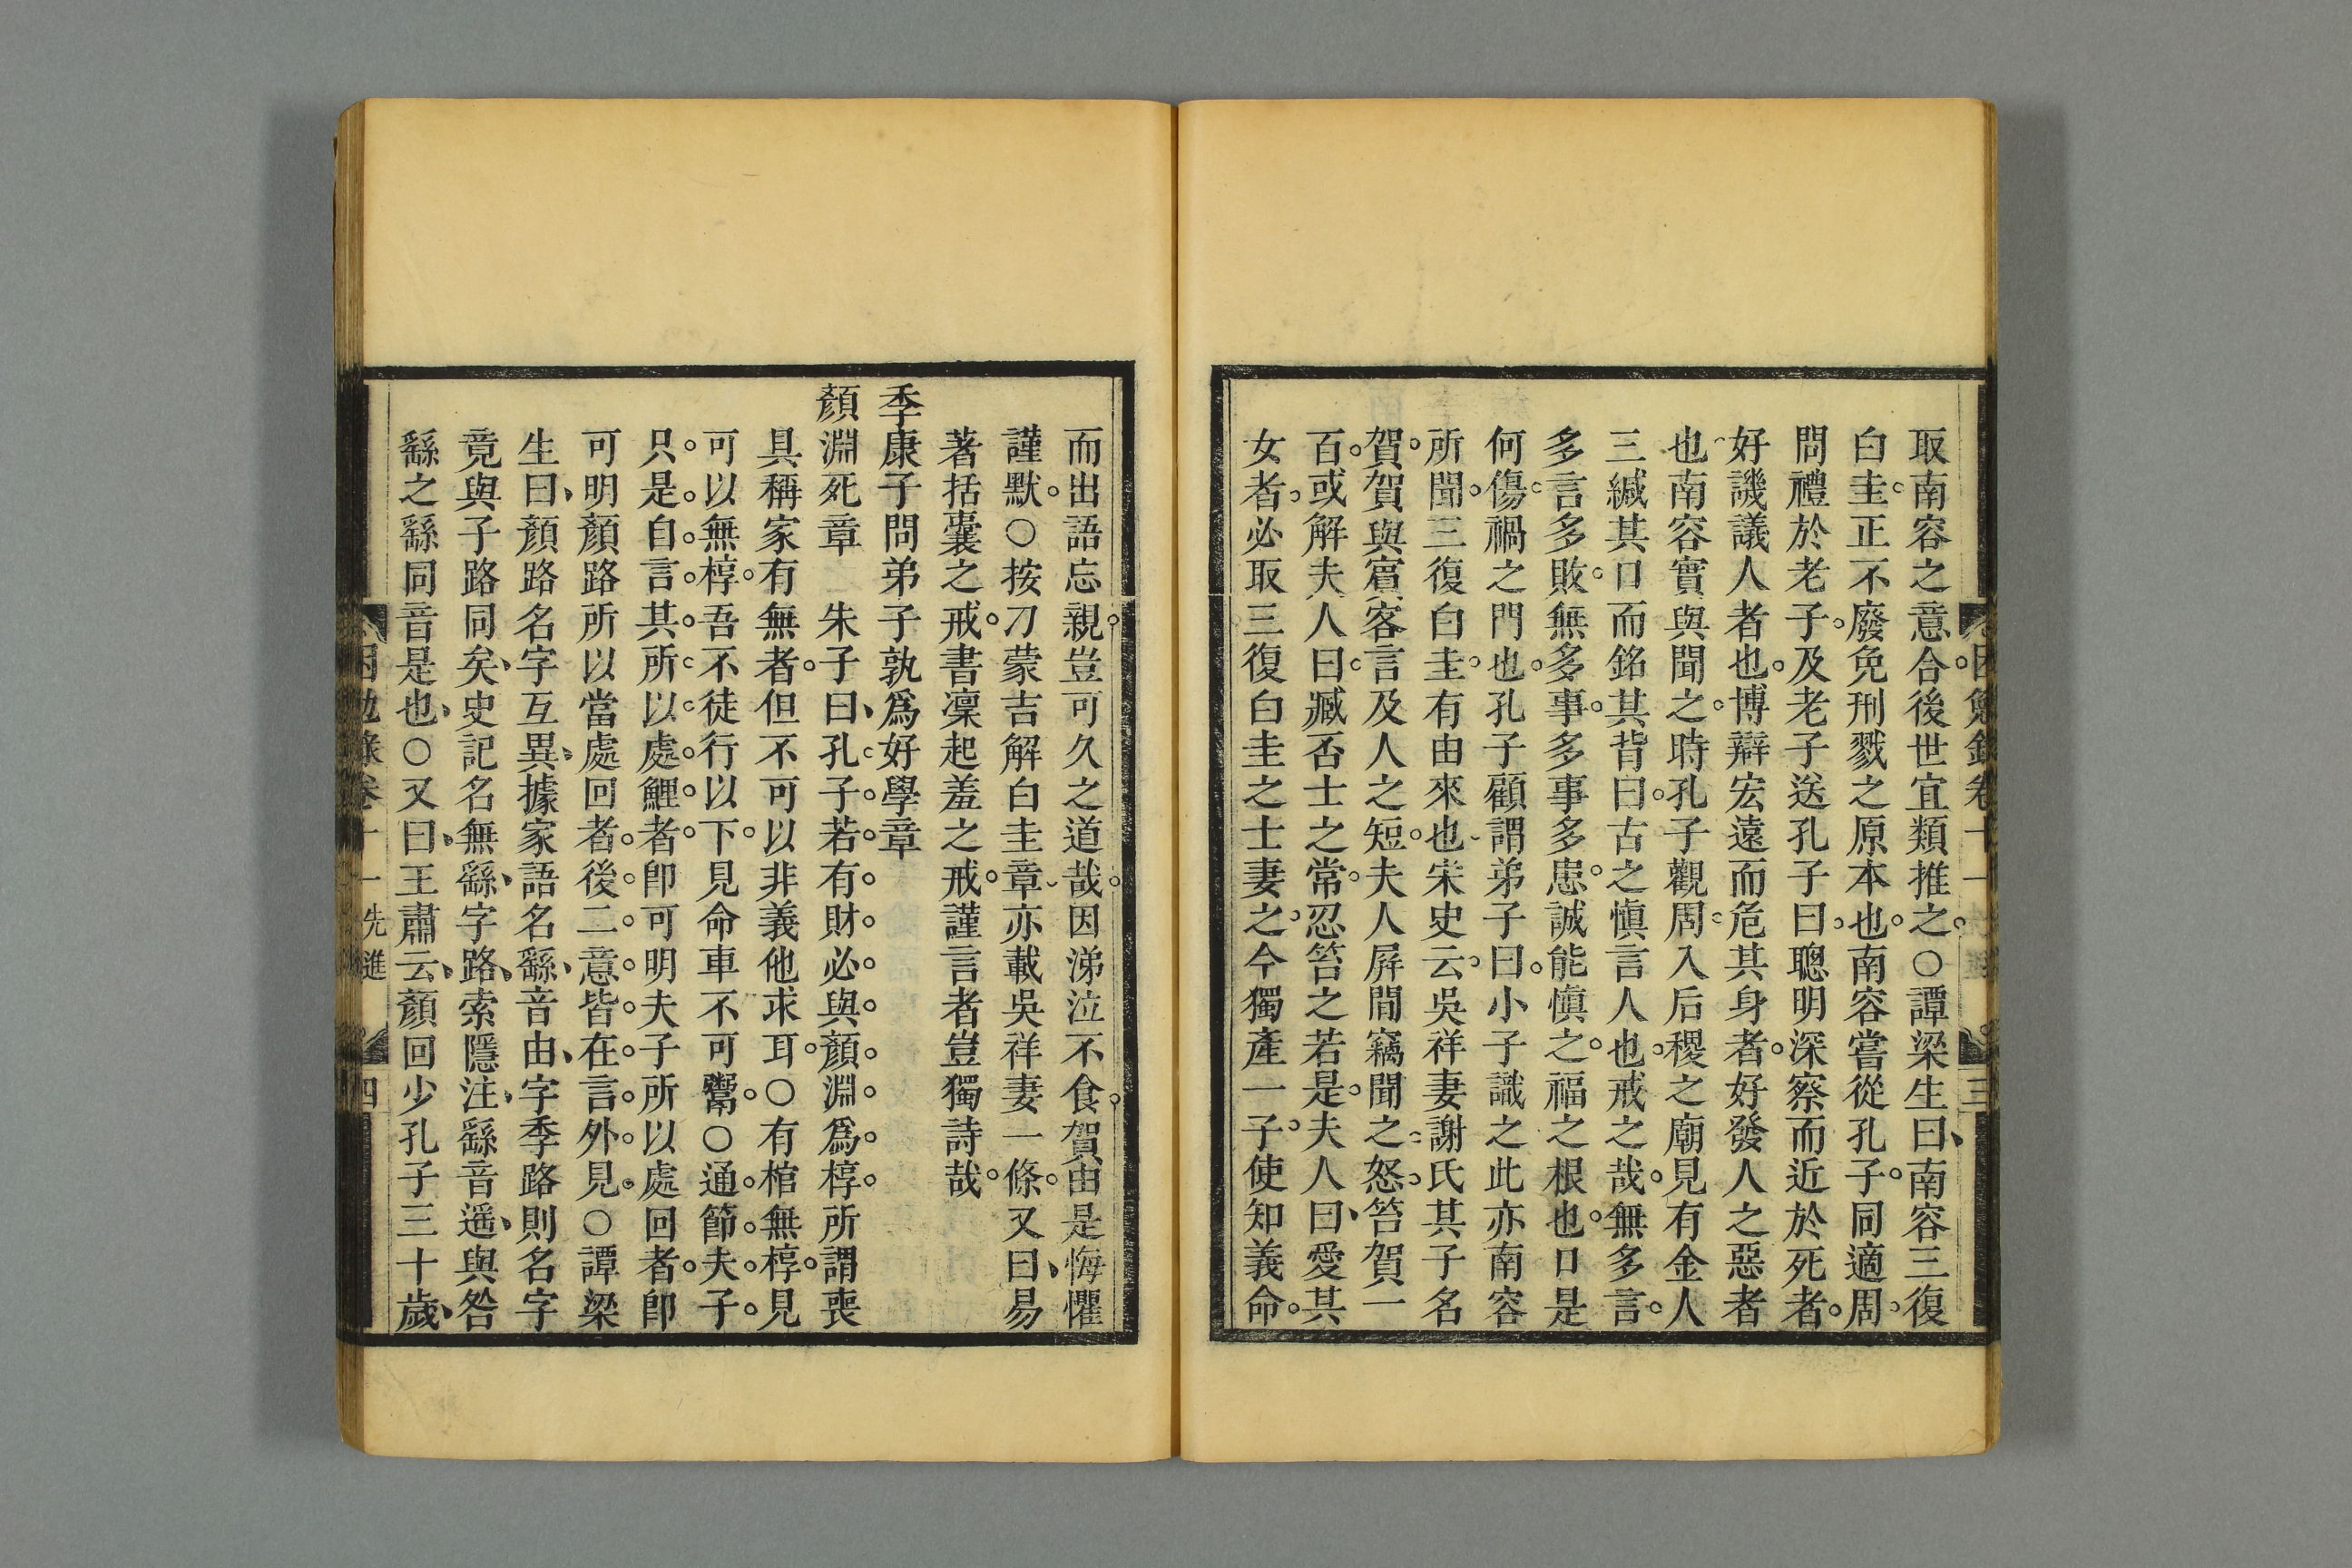 取南容之意合後世宜類推之○譚梁生曰南容三復
白圭正不廢免刑戮之原本也南容嘗從孔子同適周
問禮於老子及老子送孔子曰聰明深察而近於死者
好譏議人者也博辯宏遠而危其身者好發人之惡者
也南容實與聞之時孔子觀周入后稷之廟見有金人
三緘其口而銘其背曰古之愼言人也戒之哉無多言
多言多敗無多事多事多患誠能愼之福之根也口是
何傷禍之門也孔子顧謂弟子曰小子識之此亦南容
所聞三復白圭有由來也宋史云吳祥妻謝氏其子名
賀賀與賓客言及人之短夫人屏間竊聞之怒笞賀一
百或解夫人曰臧否士之常忍笞之若是夫人曰愛其
女者必取三復白圭之士妻之今獨產一子使知義命
而出語忘親豈可久之道哉因涕泣不食賀由是悔懼
謹默○按刁蒙吉解白圭章亦載吳祥妻一條又曰易
著括囊之戒書凜起羞之戒謹言者豈獨詩哉
季康子問弟子孰爲好學章
顏淵死章　朱子曰孔子若有財必與顏淵爲椁所謂喪
具稱家有無者但不可以非義他求耳○有棺無椁見
可以無椁吾不徒行以下見命車不可鬻○通節夫子
只是自言其所以處鯉者卽可明夫子所以處回者卽
可明顏路所以當處回者後二意皆在言外見○譚梁
生曰顏路名字互異據家語名繇音由字季路則名字
竟與子路同矣史記名無繇字路索隱注繇音遥與咎
繇之繇同音是也○又曰王肅云顏回少孔子三十歲
困勉錄卷十一　先進　四